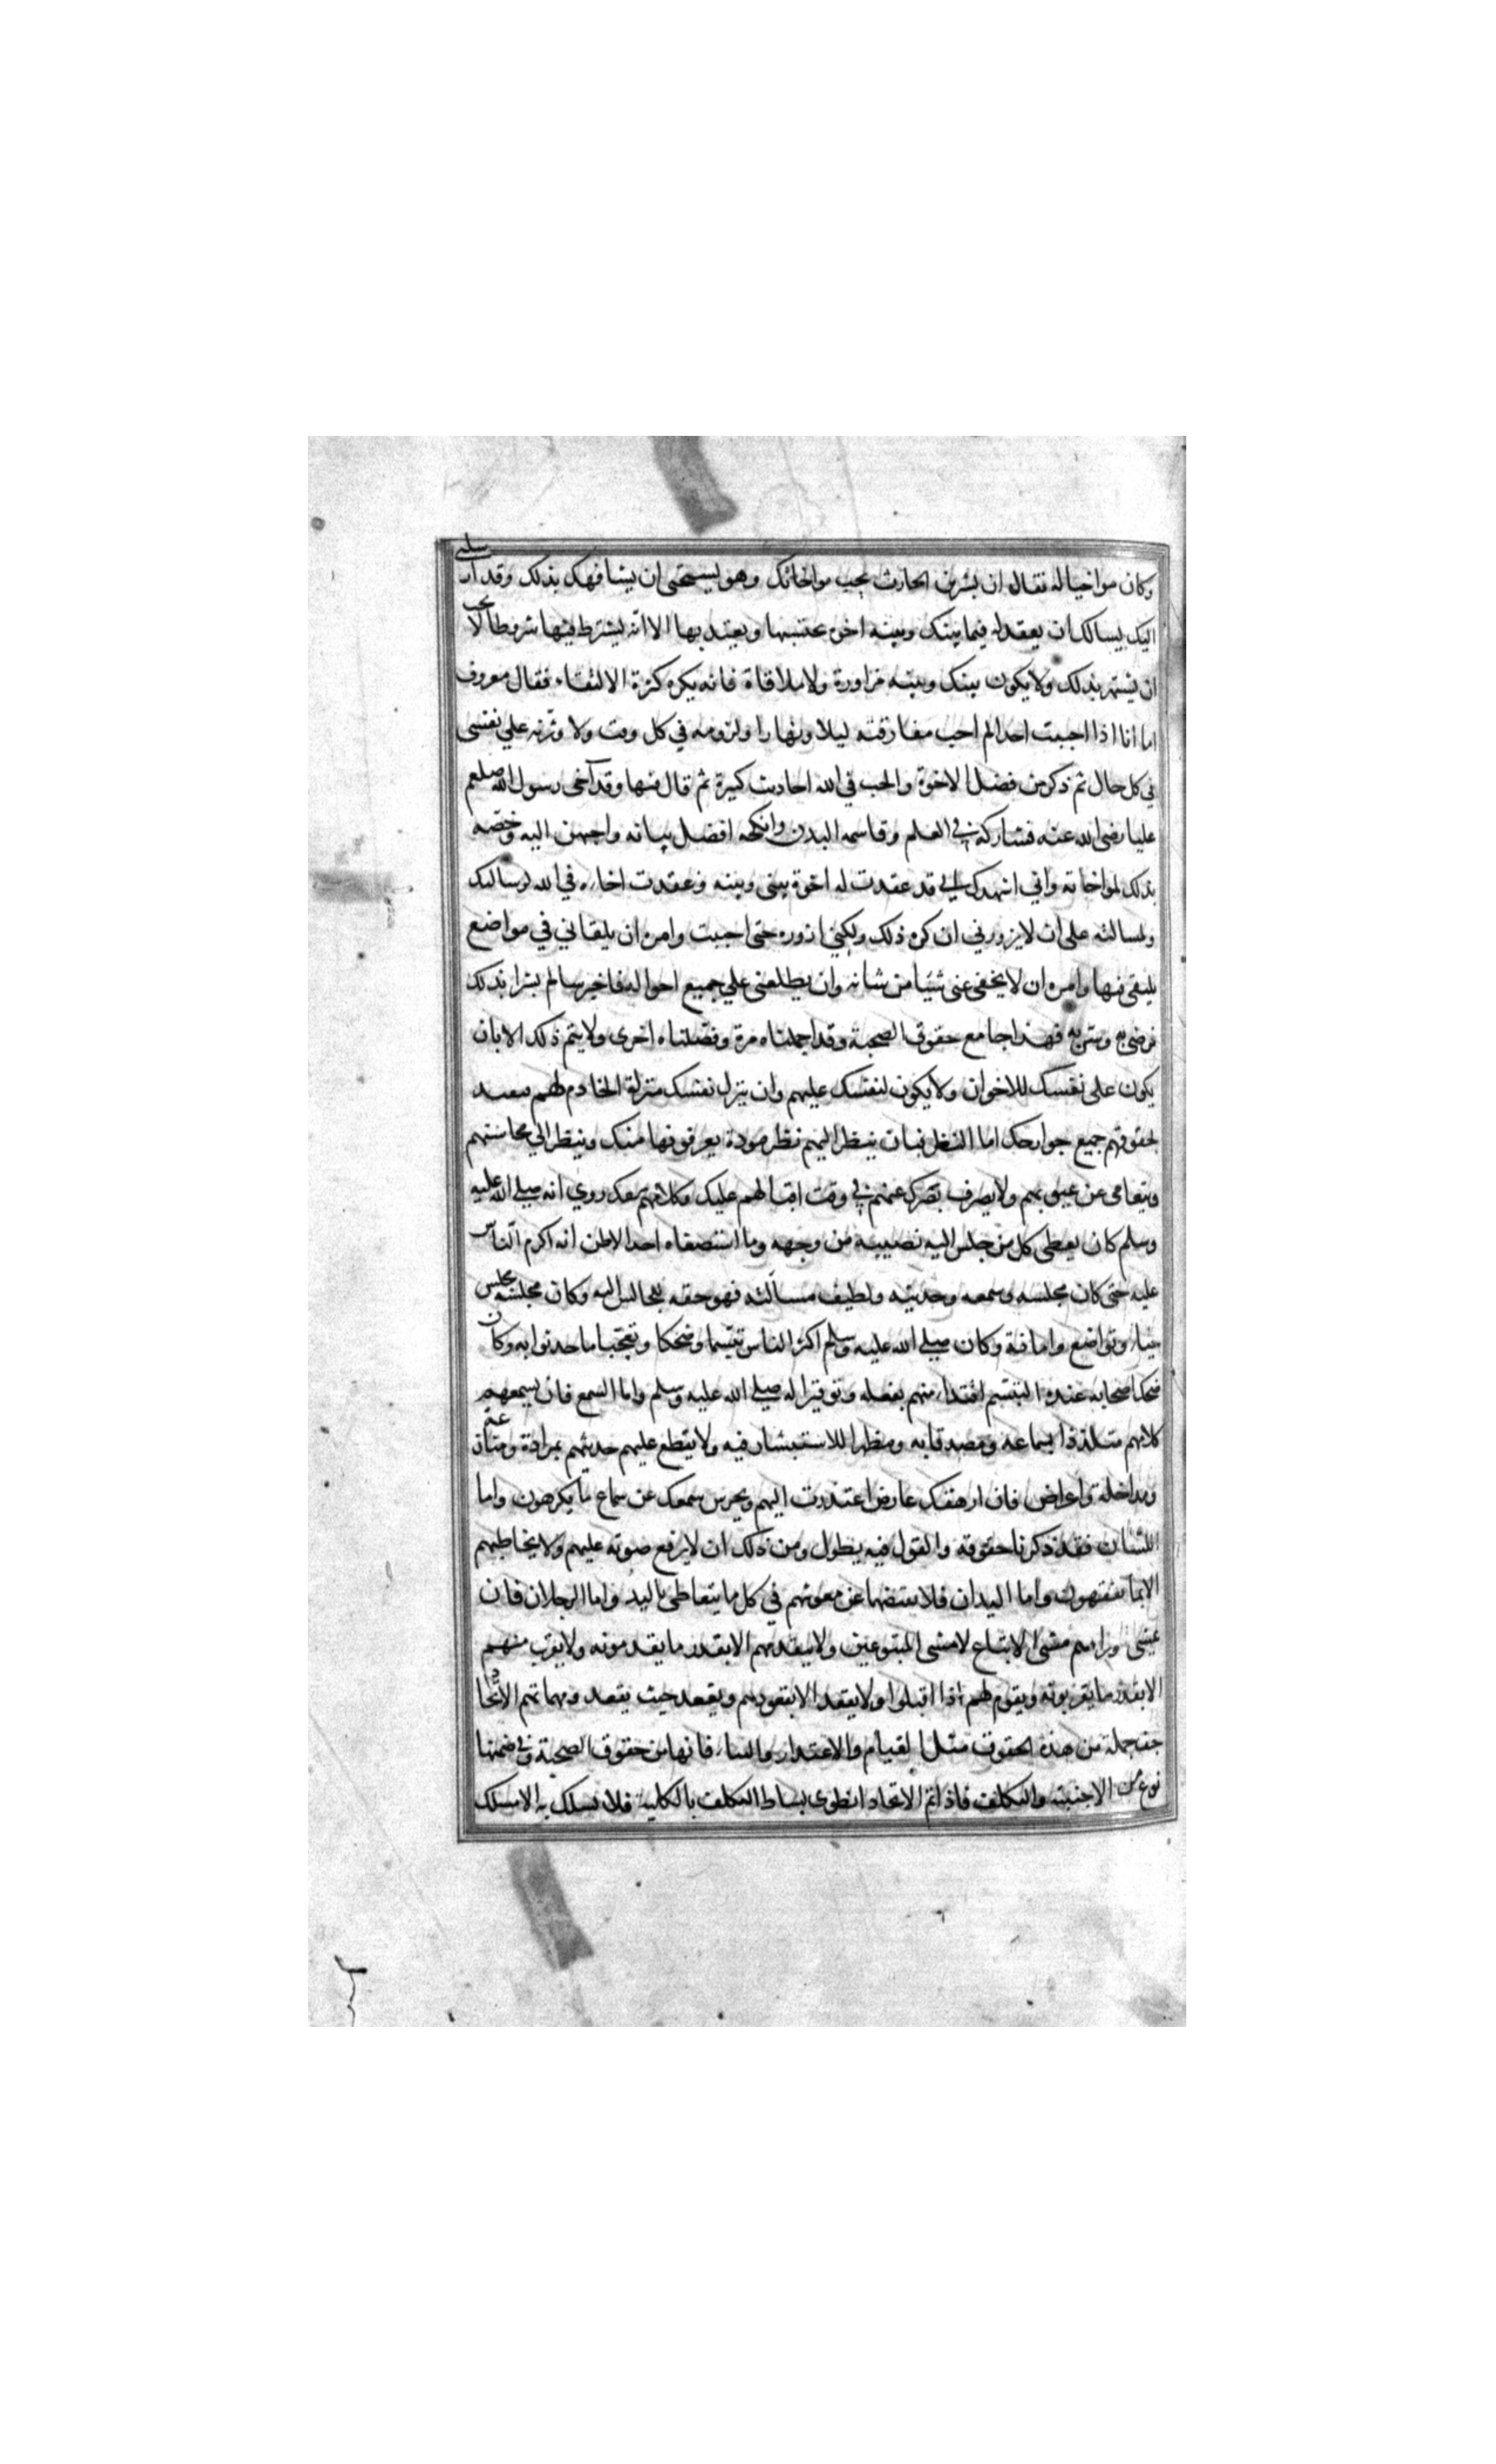 وكان مواخيا له فقال ان بشر بن الحارث يحب مواخاتك وهو يستحيى ان يشافهك بذلك وقد ارسلنى
اليك يسالك ان يعقد له فيما بينك وبينه اخوه يحتسبها ويعتد بها الا انه يشترط فيها شروطا لا يحب
ان يشتهر بذلك ولا يكون بينك وبينه مزاورة ولا ملاقاة فانه يكره كثرة الالتقاء فقال معروف
اما انا اذا احببت احدا لم احب مفارقته ليلا ونهارا ولزومه في كل وقت ولا وثرنه علي نفسى
في كل حال ثم ذكر من فضل الاخوة والحب في الله احاديث كثيرة ثم قال فيها وقد آخى رسول الله صلعم
عليا رضى الله عنه فشاركه في العلم وقاسمه البدن وانكحه افضل بناته واحبهن اليه وخصه
بذلك لمواخاته واني اشهدك اني قد عقدت له اخوة بينى وبينه وعقدت اخاءه في الله لرسالتك
ولمسالته على ان لا يزورني ان كره ذلك ولكنى ازوره حتى احببت وامره ان يلقاني في مواضع
يلتقى فيها وامره ان لا يخفى عنى شيئا من شانه وان يطلعنى علي جميع احواله فاخبر سالم بشرا بذلك
فرضى به وسر به فهذا جامع حقوق الصحبة وقد اجملناه مرة وفصلناه اخرى ولا يتم ذلك الا بان
يكون على نفسك للاخوان ولا يكون لنفسك عليهم وان ينزل نفسك منزلة الخادم لهم فيقيد
لحقوقهم جميع جوارحك اما النظر فبان ينظر اليهم نظر مودة يعرفونها منك وينظر الي محاسنهم
ويتعامى عن عيوبهم ولا يصرف بصرك عنهم في وقت اقبالهم عليك وكلامهم معك روي انه صلى الله عليه
وسلم كان يعطى كل من جلس اليه نصيبه من وجهه وما استصغاه احد الا ظن انه اكرم الناس
عليه حتى كان مجلسه وسمعه وحديثه ولطيف مسألته فهو حقه للجالس اليه وكان مجلسه مجلس
حياء وتواضع وامانة وكان صلى الله عليه وسلم اكثر الناس تبسما وضحكا وتعجبا ما حدثوا به وكان
ضحك اصحابه عنده التبسم اقتداء منهم بفعله وتوقيرا له صلى الله عليه وسلم واما السمع فان يسمعهم
كلامهم متلذذا بسماعه ومصدقا به ومظهرا للاستبشار فيه ولا يقطع عليهم حديثهم بمرادة ومنازعة
ومداخلة واعراض فان ارهقك عارض اعتذرت اليهم ويحرس سمعك عن سماع ما يكرهون واما
اللسان فقد ذكرنا حقوقه والقول فيه يطول ومن ذلك ان لا يرفع صوته عليهم ولا يخاطبهم
الا بما يفقهون واما اليدان فلا يقبضهما عن معونتهم في كل ما يتعاطى باليد واما الرجلان فان
يمشى وراءهم مشى الاتباع لا مشى المتبوعين ولا يتقدمهم الا بقدر ما يقدمونه ولا يقرب منهم
الا بقدر ما يقربونه ويقوم لهم اذا اقبلوا ولا يقعد الا بقعودهم ويقعد حيث يقعد ومهما تم الاتحاد
خف جملة من هذه الحقوق مثل القيام والاعتذار والثناء فانها من حقوق الصحبة وفي ضمنها
نوع من الاجنبية والتكلف فاذا تم الاتحاد انطوى بساط التكلف بالكلية فلا يسلك به الا مسلك